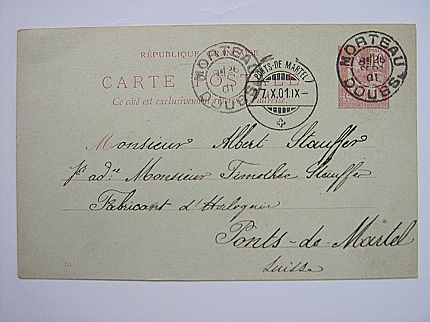 RÉPUBLIQUE FRANÇAISE
CARTE POSTALE
Ce côté est exclusivement réservé à l'adresse.
MORTEAU
01
DOUBS
PONTS-DE-MARTEL
17.X.01.IX-
MORTEAU
01
DOUBS
Monsieur Albert Stauffer
pr adr. Monsieur Timothée Stauffer
Fabricant d'Horlogerie
Ponts-de-Martel
Suisse